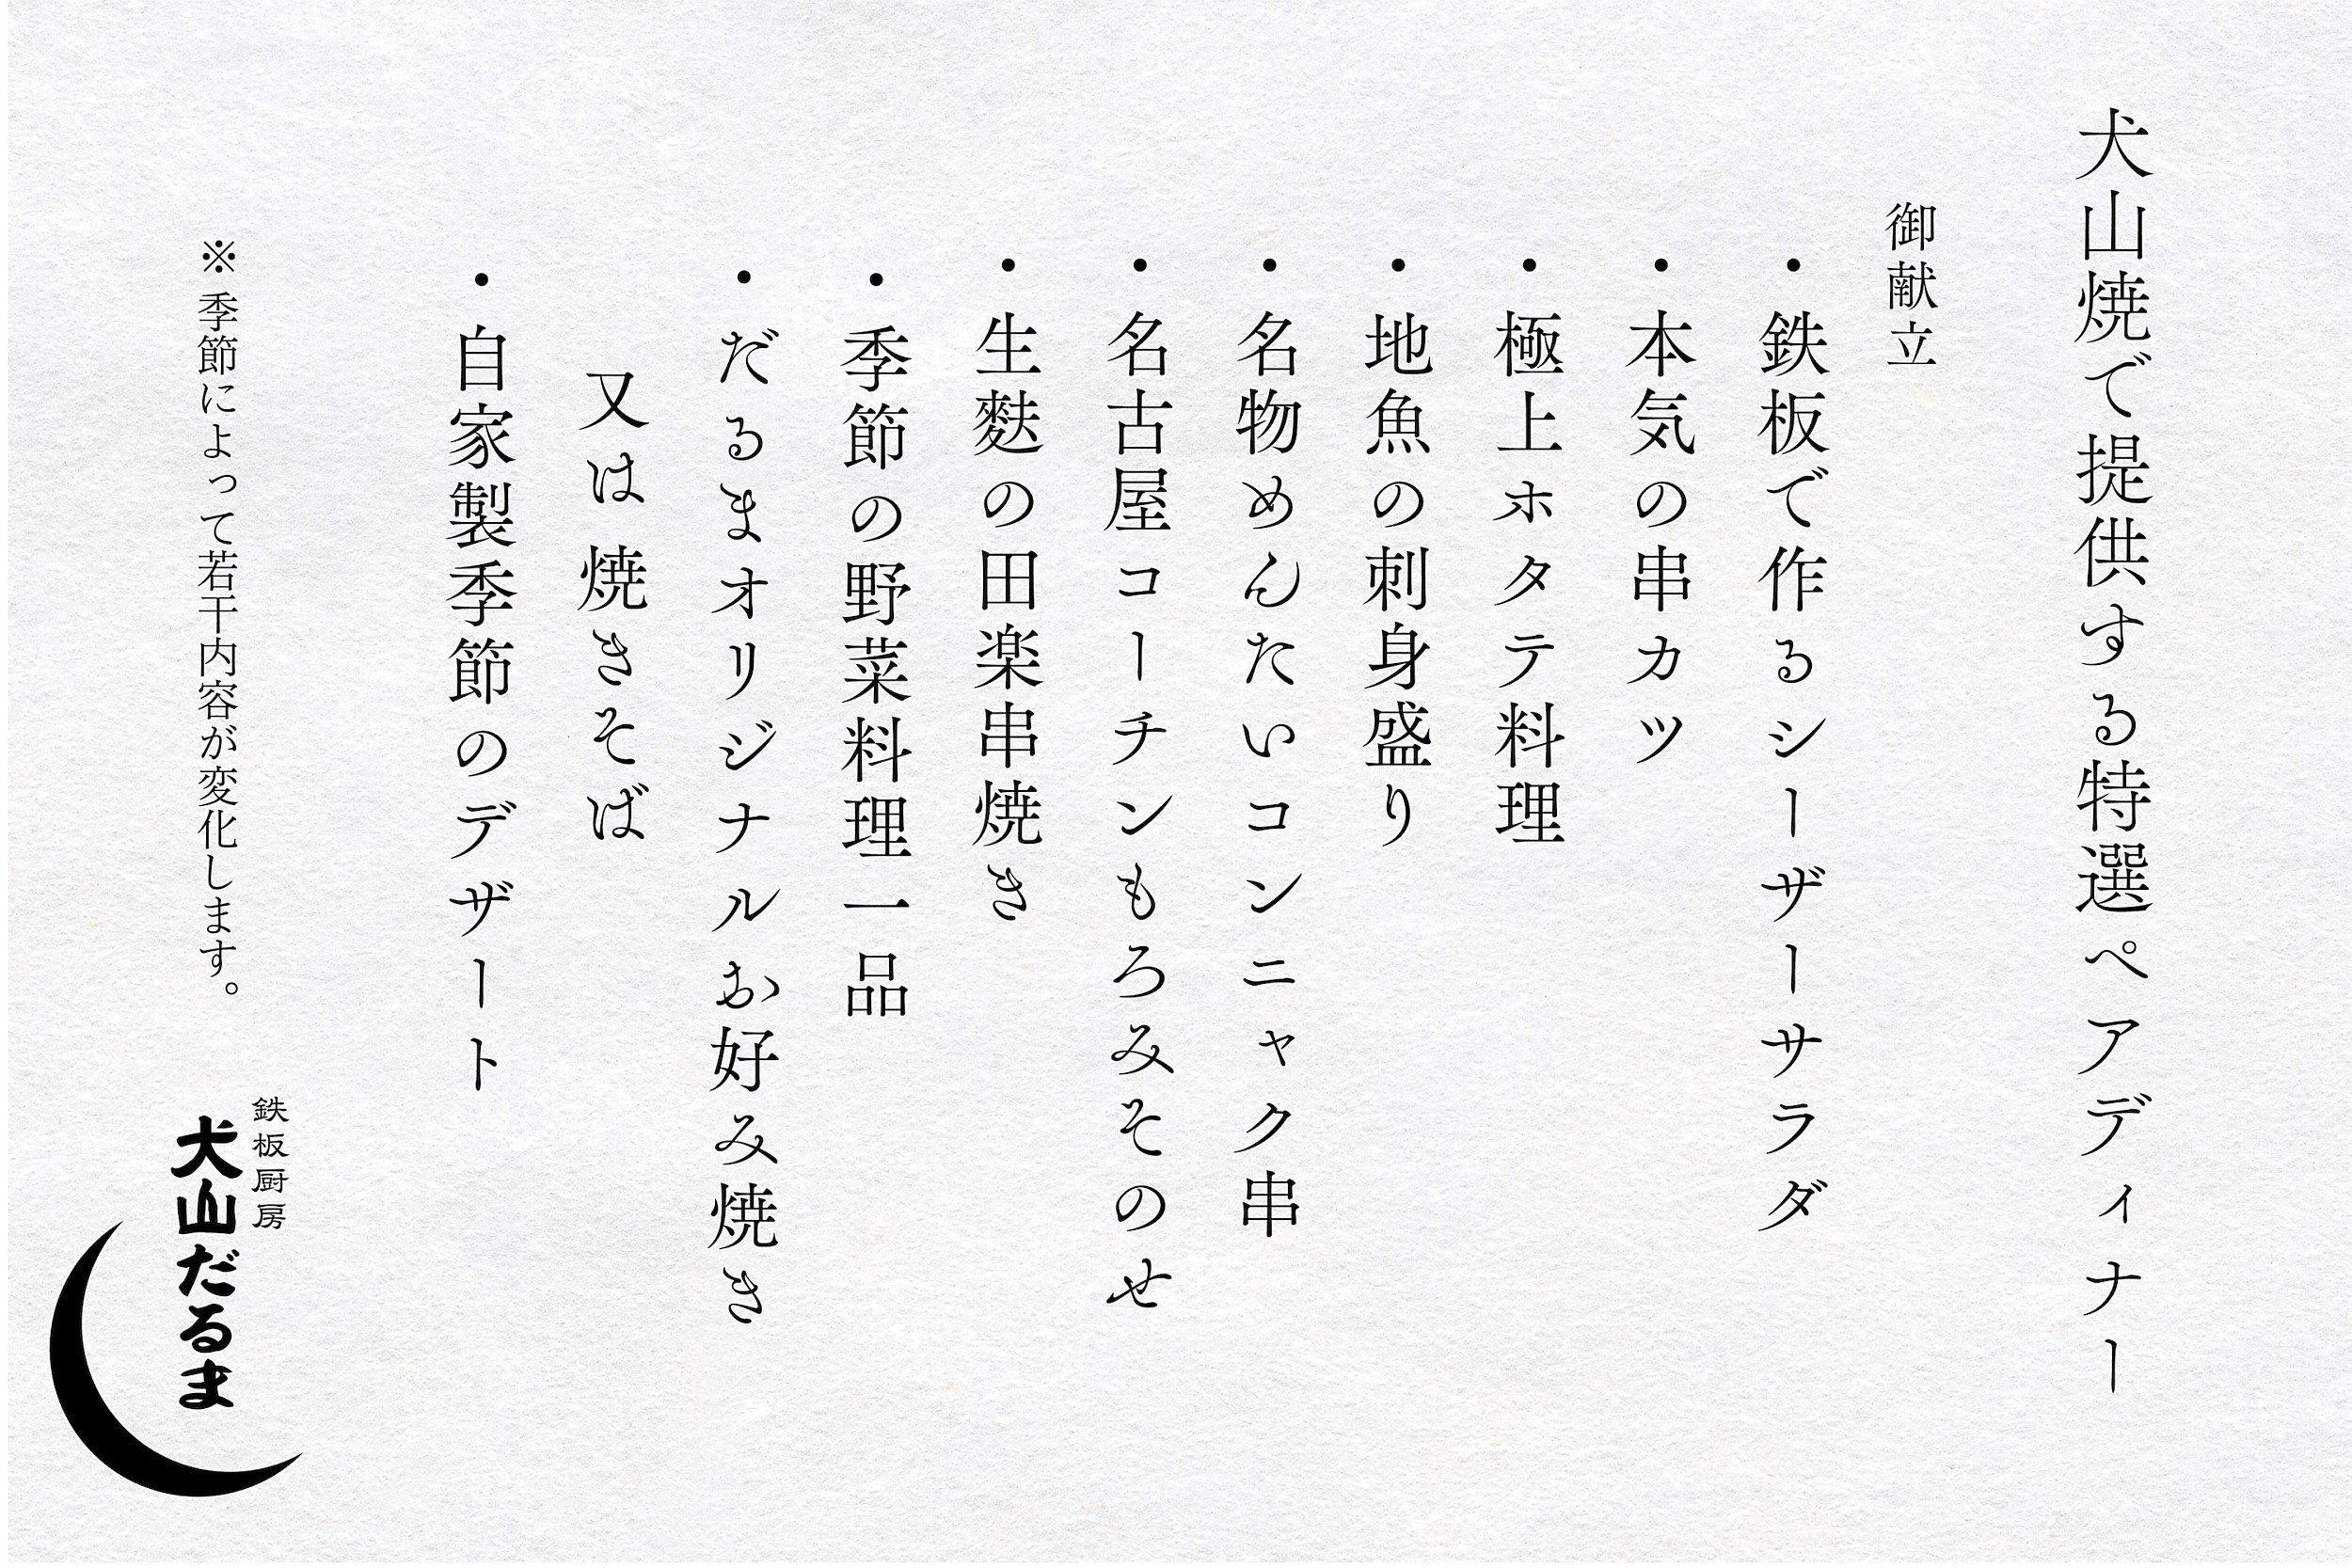 犬山焼で提供する特選ペアディナー
御献立
・鉄板で作るシーザーサラダ
・本気の串カツ
・極上ホタテ料理
・地魚の刺身盛り
・名物めんたいコンニャク串
・名古屋コーチンもろみそのせ
・生麩の田楽串焼き
・季節の野菜料理一品
・だるまオリジナルお好み焼き
又は焼きそば
・自家製季節のデザート
※季節によって若干内容が変化します。
鉄板厨房
犬山だるま